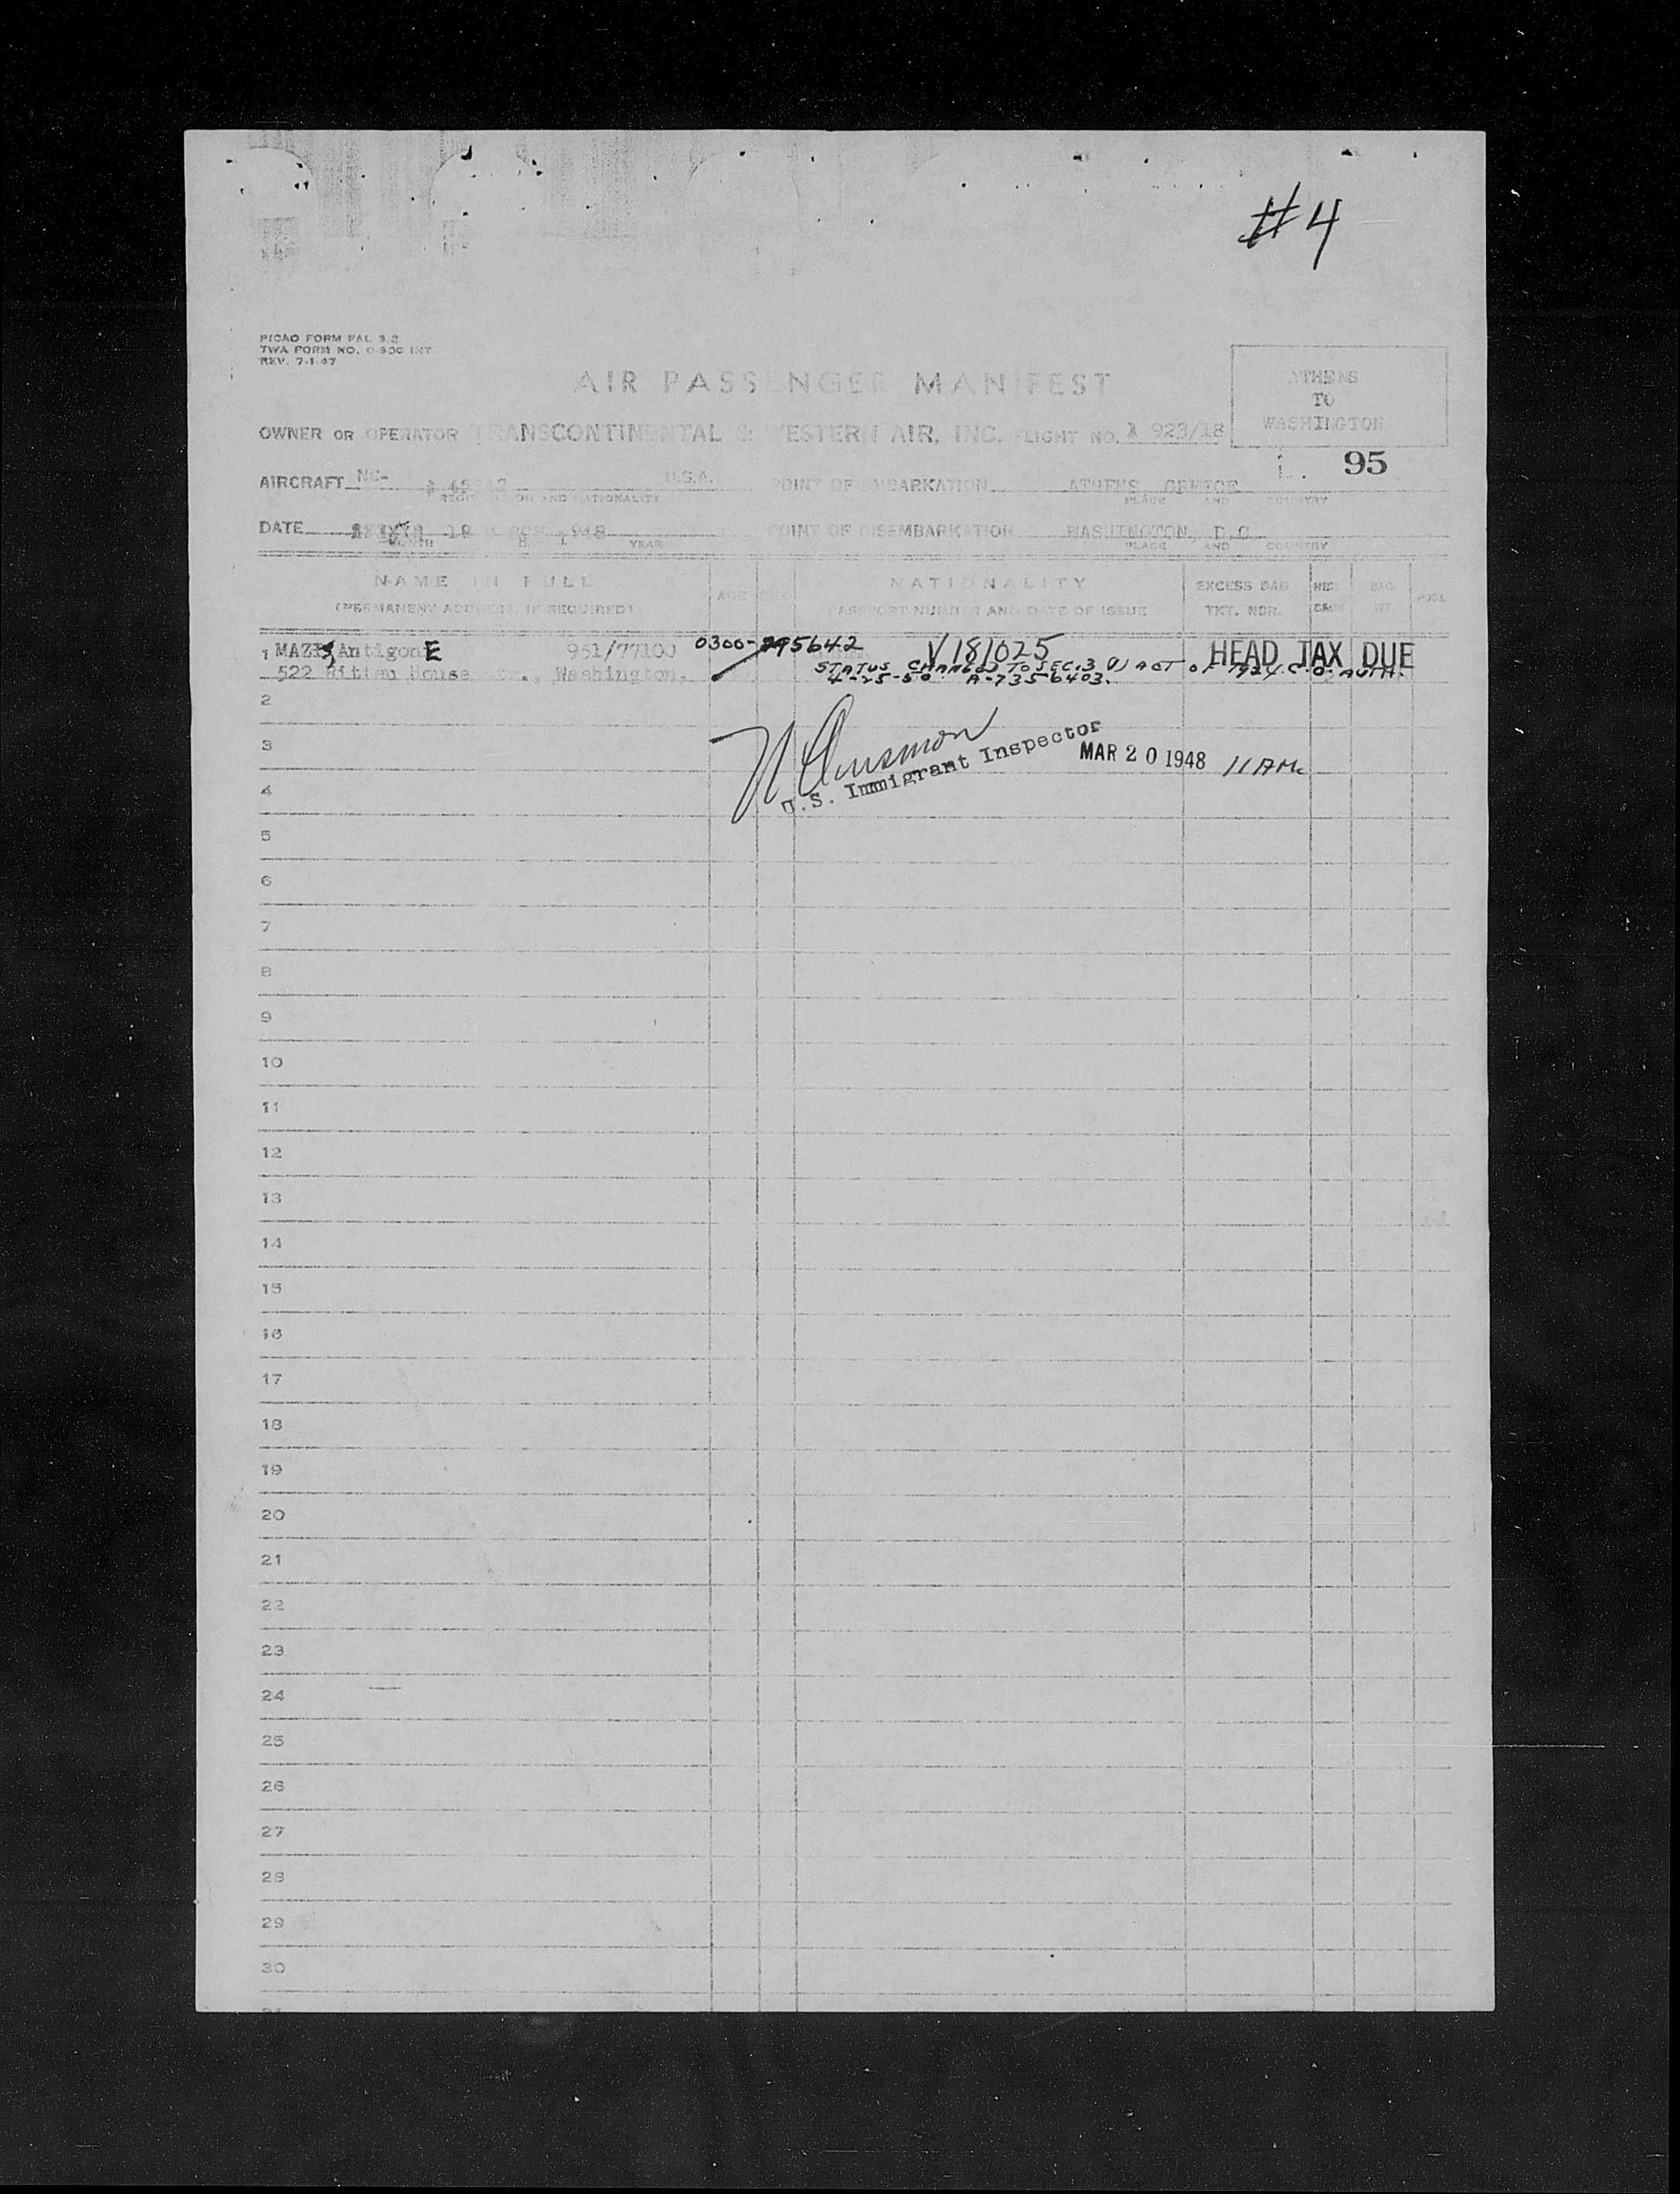 #4
PICAO FORM FAL 3.2
TWA FORM NO. O-900 INT
REV. 7-1-47
AIR PASSENGER MANIFEST
ATHENS
TO
WASHINGTON
OWNER OR OPERATOR TRANSCONTINENTAL & WESTERN AIR, INC. FLIGHT NO. X 923/18
95
AIRCRAFT NC- U.S.A. POINT OF EMBARKATION ATHENS GREECE
REGISTRATION AND NATIONALITY PLACE AND COUNTRY
DATE 18 1948 POINT OF DISEMBARKATION WASHINGTON, D.C.
MONTH DAY YEAR PLACE AND COUNTRY
NAME IN FULL AGE SEX NATIONALITY EXCESS BAG BAG
(PERMANENT ADDRESS, IF REQUIRED) PASSPORT NUMBER AND DATE OF ISSUE TKT. NBR. WT.
1 MAZIS, Antigon E 951/77100 0300-295642 V181025 HEAD TAX DUE
522 Ritten House str., Washington. STATUS CHANGED TO SEC. 3 (1) ACT OF 1924. C.O. AUTH.
4-25-50 A-7356403.
2
3
U.S. Immigrant Inspector MAR 20 1948 11 AM
4
5
6
7
8
9
10
11
12
13
14
15
16
17
18
19
20
21
22
23
24
25
26
27
28
29
30